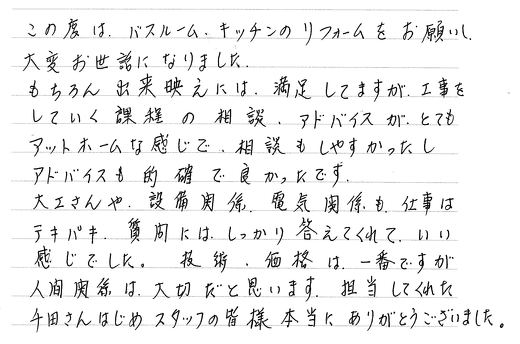 この度は、バスルーム、キッチンのリフォームをお願いし、
大変お世話になりました。
もちろん出来映えには、満足してますが、工事を
していく課程の相談、アドバイスが、とても
アットホームな感じで、相談もしやすかったし
アドバイスも的確で良かったです。
大工さんや、設備関係、電気関係も、仕事は
テキパキ、質問には、しっかり答えてくれて、いい
感じでした。技術、価格は、一番ですが
人間関係は、大切だと思います。担当してくれた
千田さんはじめスタッフの皆様本当にありがとうございました。